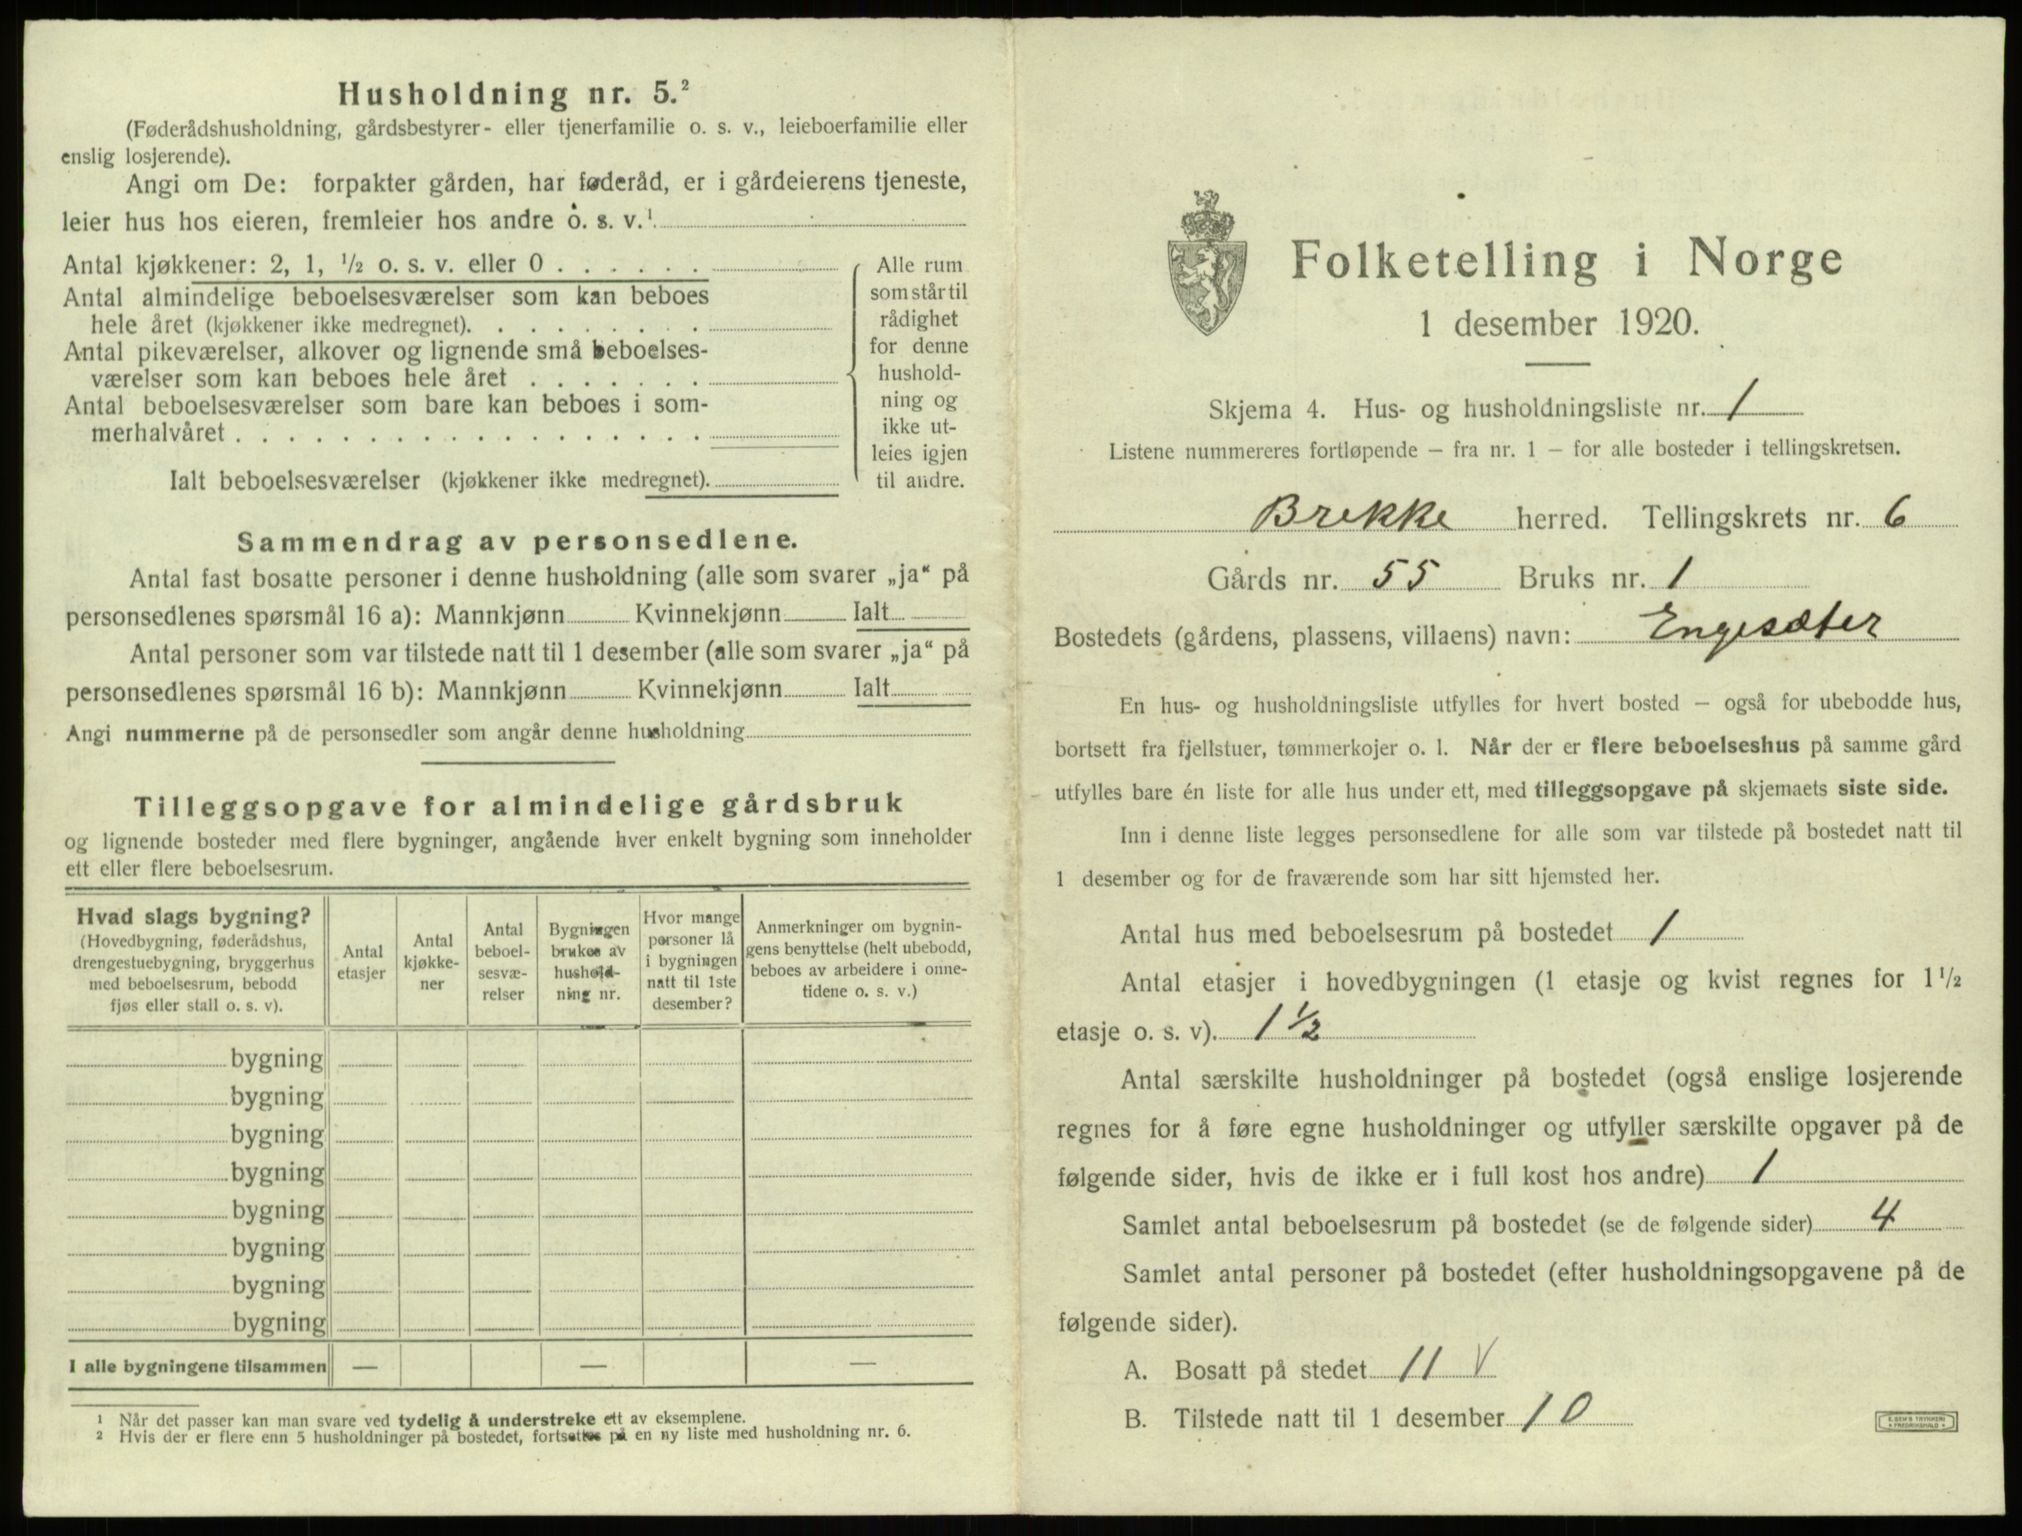 Husholdning nr. 5.²
(Føderådshusholdning, gårdsbestyrer- eller tjenerfamilie o. s. v., leieboerfamilie eller
enslig losjerende).
Angi om De: forpakter gården, har føderåd, er i gårdeierens tjeneste,
leier hus hos eieren, fremleier hos andre o. s. v.¹
Antal kjøkkener: 2, 1, ½ o. s. v. eller 0 . . . . . .
Antal almindelige beboelsesværelser som kan beboes
hele året (kjøkkener ikke medregnet). . . . . . . . .
Antal pikeværelser, alkover og lignende små beboelses-
værelser som kan beboes hele året . . . . . . .
Antal beboelsesværelser som bare kan beboes i som-
merhalvåret . . . . . . . . . . . . . . . . . .
Ialt beboelsesværelser (kjøkkener ikke medregnet).
Alle rum
som står til
rådighet
for denne
hushold-
ning og
ikke ut-
leies igjen
til andre.
Sammendrag av personsedlene.
Antal fast bosatte personer i denne husholdning (alle som svarer „ja“ på
personsedlenes spørsmål 16 a): Mannkjønn Kvinnekjønn Ialt
Antal personer som var tilstede natt til 1 desember (alle som svarer „ja“ på
personsedlenes spørsmål 16 b): Mannkjønn Kvinnekjønn Ialt
Angi nummerne på de personsedler som angår denne husholdning
Tilleggsopgave for almindelige gårdsbruk
og lignende bosteder med flere bygninger, angående hver enkelt bygning som inneholder
ett eller flere beboelsesrum.
Hvad slags bygning?
(Hovedbygning, føderådshus,
drengestuebygning, bryggerhus
med beboelsesrum, bebodd
fjøs eller stall o. s. v).
Antal
etasjer
Antal
kjøkke-
ner
Antal
beboel-
sesvæ-
relser
Bygningen
brukes av
hushold-
ning nr.
Hvor mange
personer lå
i bygningen
natt til 1ste
desember?
Anmerkninger om bygnin-
gens benyttelse (helt ubebodd,
beboes av arbeidere i onne-
tidene o. s. v.)
bygning
bygning
bygning
bygning
bygning
bygning
bygning
bygning
I alle bygningene tilsammen — — —
¹ Når det passer kan man svare ved tydelig å understreke ett av eksemplene.
² Hvis der er flere enn 5 husholdninger på bostedet, fortsettes på en ny liste med husholdning nr. 6.
Folketelling i Norge
1 desember 1920.
Skjema 4. Hus- og husholdningsliste nr. 1
Listene nummereres fortløpende — fra nr. 1 — for alle bosteder i tellingskretsen.
Brekke herred. Tellingskrets nr. 6
Gårds nr. 55 Bruks nr. 1
Bostedets (gårdens, plassens, villaens) navn: Engesæter
En hus- og husholdningsliste utfylles for hvert bosted — også for ubebodde hus,
bortsett fra fjellstuer, tømmerkojer o. l. Når der er flere beboelseshus på samme gård
utfylles bare én liste for alle hus under ett, med tilleggsopgave på skjemaets siste side.
Inn i denne liste legges personsedlene for alle som var tilstede på bostedet natt til
1 desember og for de fraværende som har sitt hjemsted her.
Antal hus med beboelsesrum på bostedet 1
Antal etasjer i hovedbygningen (1 etasje og kvist regnes for 1½
etasje o. s. v). 1½
Antal særskilte husholdninger på bostedet (også enslige losjerende
regnes for å føre egne husholdninger og utfyller særskilte opgaver på de
følgende sider, hvis de ikke er i full kost hos andre) 1
Samlet antal beboelsesrum på bostedet (se de følgende sider) 4
Samlet antal personer på bostedet (efter husholdningsopgavene på de
følgende sider).
A. Bosatt på stedet 11 V
B. Tilstede natt til 1 desember 10
E. SEM'S TRYKKERI
FREDRIKSHALD